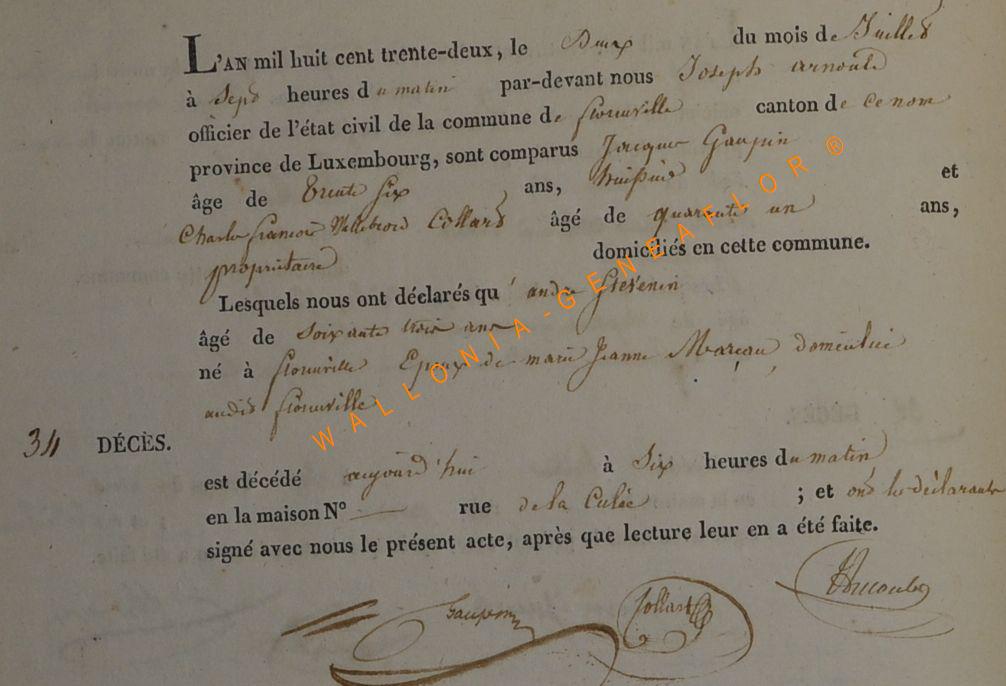 L'AN mil huit cent trente-deux, le Deux du mois de Juillet
à Sept heures du matin par-devant nous Joseph arnould
officier de l'état civil de la commune de florenville canton de ce nom
province de Luxembourg, sont comparus Jacques Gaupin
âge de trente six ans, huissier et
Charles françois Willebrord Collard âgé de quarante un ans,
propriétaire domiciliés en cette commune.
Lesquels nous ont déclarés qu'andré Stevenin
âgé de Soixante trois ans
né à florenville Epoux de marie Jeanne domicilié
audit florenville
34 DÉCÈS.
est décédé aujourd'hui à Six heures du matin
en la maison N° — rue de la Culée ; et ont les déclarants
signé avec nous le présent acte, après que lecture leur en a été faite.
Collard
WALLONIA-GENEAFLOR ®